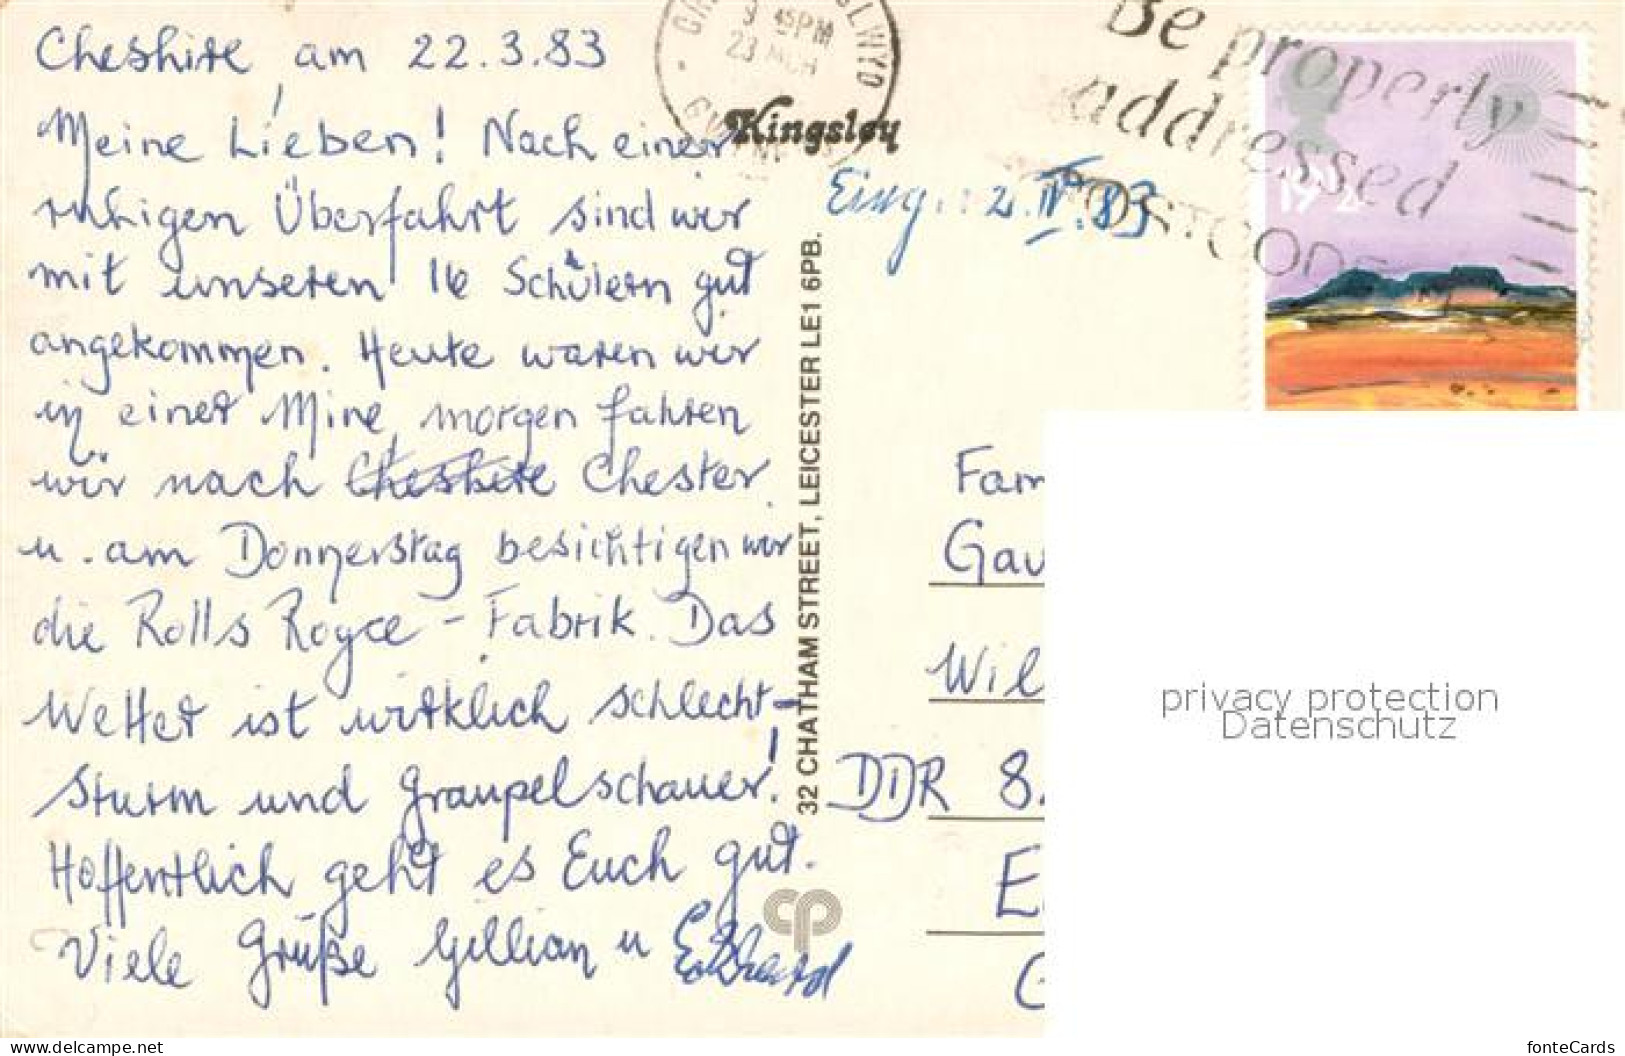 Cheshire am 22.3.83
Meine Lieben! Nach einer
ruhigen Überfahrt sind wir
mit unseren 16 Schülern gut
angekommen. Heute waren wir
in einer Mine, morgen fahren
wir nach Cheshire Chester
u. am Donnerstag besichtigen wir
die Rolls Royce - Fabrik. Das
Wetter ist wirklich schlecht -
Sturm und Graupelschauer!
Hoffentlich geht es Euch gut.
Viele Grüße Gillian u
Kingsley
32 CHATHAM STREET, LEICESTER LE1 6PB.
cp
45PM
23 MCH
CLWYD
Be properly
addressed
POSTCODE
19½
Eing.: 2.IV.83
Fam
Gau
Wil
DDR 8.
E
G
privacy protection
Datenschutz
www.delcampe.net
fonteCards